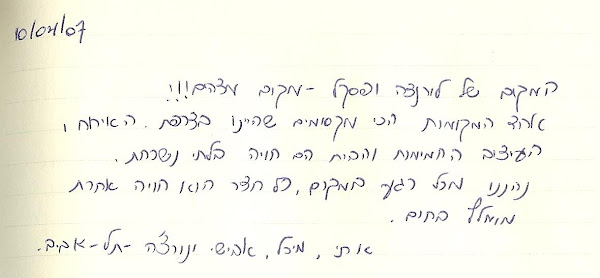 10/04/07
המקום של לורנצה ופסקל - מקום מדהים!!!
אחד המקומות הכי מקסימים שהיינו בצרפת. האירוח,
העיצוב החמימות והבית הם חויה בלתי נשכחת.
נהננו מכל רגע במקום, כל חדר הוא חויה אחרת
מומלץ בחום.
אותי, מיכל, אבישי - תל-אביב.